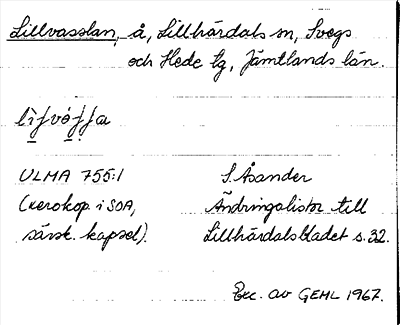 Lillvasslan, å, Lillhärdals sn, Svegs
och Hede tg, Jämtlands län.
ULMA 755:1
S. Åsander
(xerokop. i SOA,
Ändringalistor till
särsk. kapsel).
Lillhärdalsbladet s. 32.
Exc. av GEHL 1967.